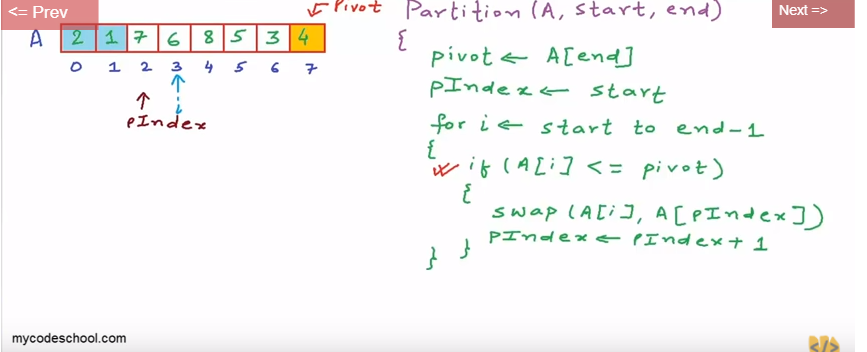 <= Prev
Pivot
Next =>
A
2 1 7 6 8 5 3 4
0 1 2 3 4 5 6 7
i
PIndex
Partition (A, start, end)
{
pivot ← A[end]
PIndex ← start
for i ← start to end-1
{
if (A[i] <= pivot)
{
swap (A[i], A[PIndex])
PIndex ← PIndex + 1
}
}
mycodeschool.com
</>